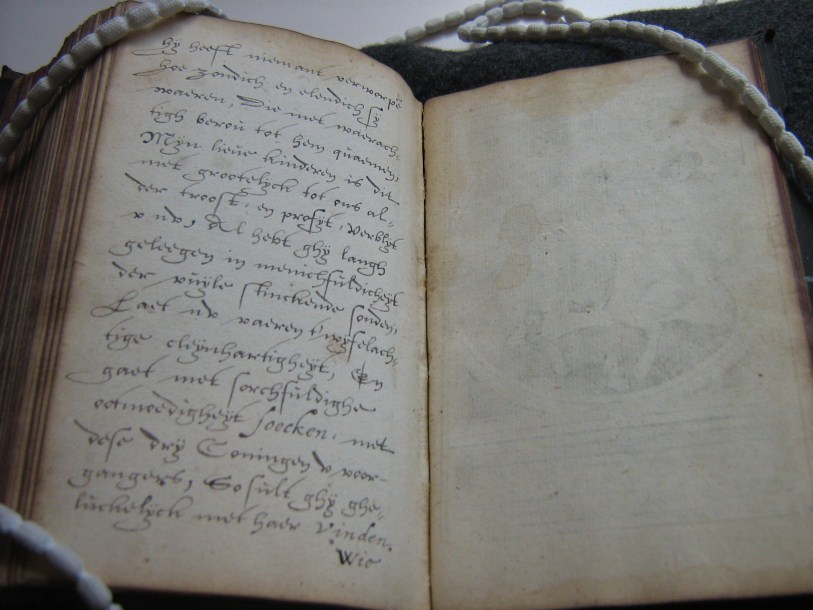 hy heeft niemant verworpē
hoe zondich en elendich sy
waeren, Die met waerach-
tigh berou tot hem quaemen,
Mijn lieue kinderen is dit
niet grootelijck tot ons al-
der troost, en profyt, Verblijt
v nv, Al hebt ghy langh
geleegen in menichfuldicheyt
der vuyle stinckende sonden,
Laet nv vaeren t'wyfelach-
tige cleynhartigheyt, En
gaet met sorchfuldighe
ootmoedigheyt soecken, met
dese dry Coningen v voor-
gangers, So sult ghy ghe-
luckelyck met haer Vinden.
Wie